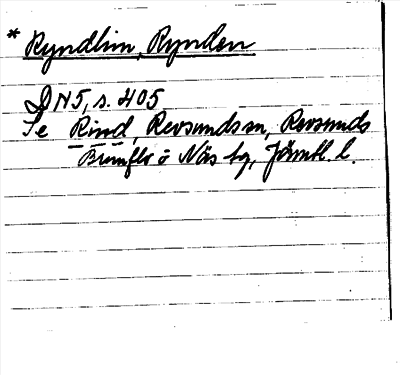 * Ryndhim, Rynden
DN5, s. 405
Se Rind, Revsunds sn, Revsunds
Brunflo o Näs tg, Jämtl. l.